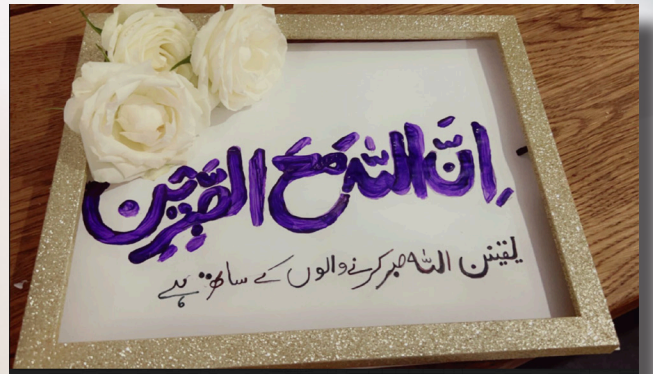 اِنَّ اللّٰهَ مَعَ الصّٰبِرِیْن
یقینن اللّٰہ صبر کرنے والوں کے ساتھ ہے